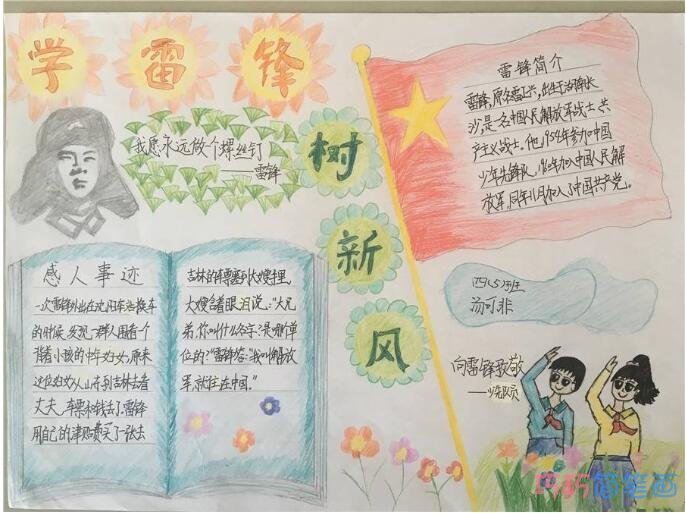 学雷锋
树新风
我愿永远做个螺丝钉
——雷锋
雷锋简介
雷锋,原名雷正兴,出生于湖南长
沙,是一名中国人民解放军战士,共
产主义战士。他,1954年参加中国
少年先锋队,1960年加入中国人民解
放军,同年11月加入了中国共产党。
感人事迹
一次雷锋外出在沈阳车站换车
的时候,发现一群人围看一个
背着小孩的中年妇女,原来
这位妇女从山东到吉林去看
丈夫,车票和钱丢了。雷锋
用自己的津贴费买了一张去
吉林的车票塞到大嫂手里,
大嫂含着眼泪说:“大兄
弟,你叫什么名字?是哪个单
位的?”雷锋答:“我叫解放
军,就住在中国。”
四(5)班
汤可非
向雷锋致敬
——少先队员
巧巧简笔画